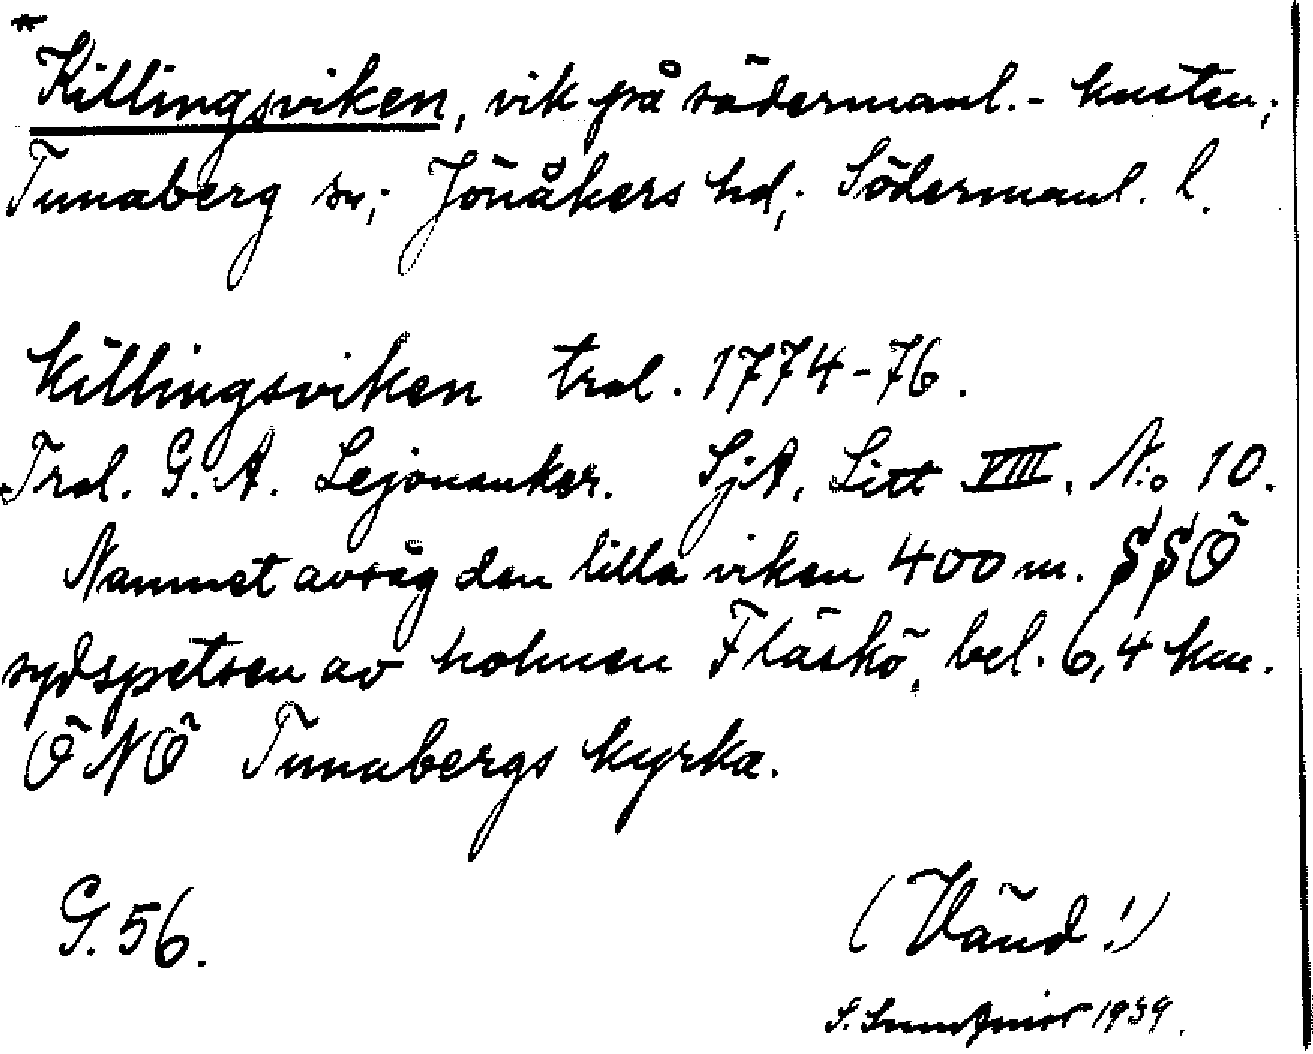 * Killingsviken, vik på södermanl.- kusten;
Tunaberg sn; Jönåkers hd; Södermanl. l.
Killingsviken trol. 1774-76.
Trol. G. A. Lejonanker. SjA, Litt VIII. N:o 10.
Namnet avsåg den lilla viken 400 m. SSÖ
sydspetsen av holmen Fläskö, bel. 6,4 km.
ÖNÖ Tunabergs kyrka.
G. 56.
(Vänd!)
S. 1939.